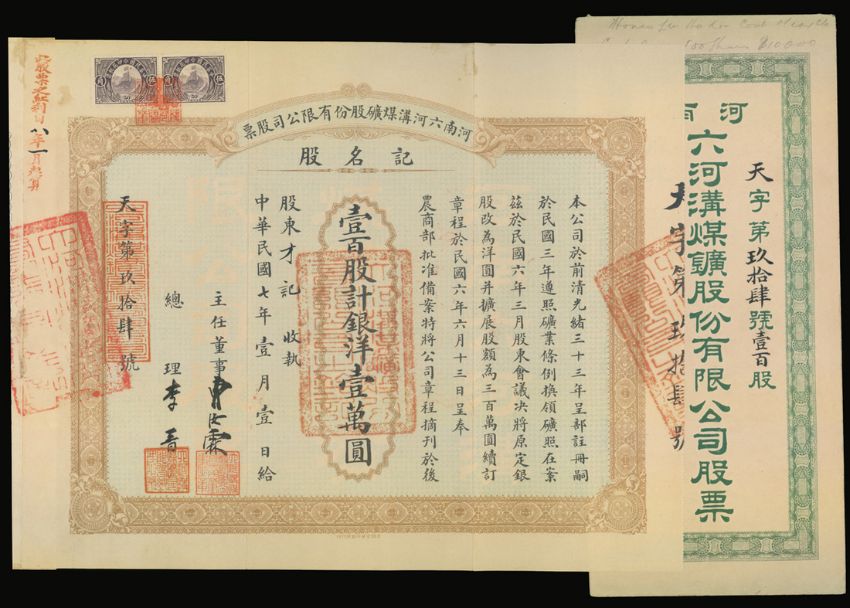 河南六河溝煤礦股份有限公司股票
記名股
本公司於前清光緒三十三年呈部註冊嗣
於民國三年遵照礦業條例換領礦照在案
茲於民國六年三月股東會議決將原定銀
股改為洋圓并擴展股額為三百萬圓續訂
章程於民國六年六月十三日呈奉
農商部批准備案特將公司章程摘刊於後
壹百股計銀洋壹萬圓
股東才記 收執
中華民國七年壹月壹日給
主任董事曹汝霖
總理李晉
天字第玖拾肆號
此股票之紅利自八年一月起算
天字第玖拾肆號壹百股
河
六河溝煤鑛股份有限公司股票
天字第玖拾肆號
100 Share $10000